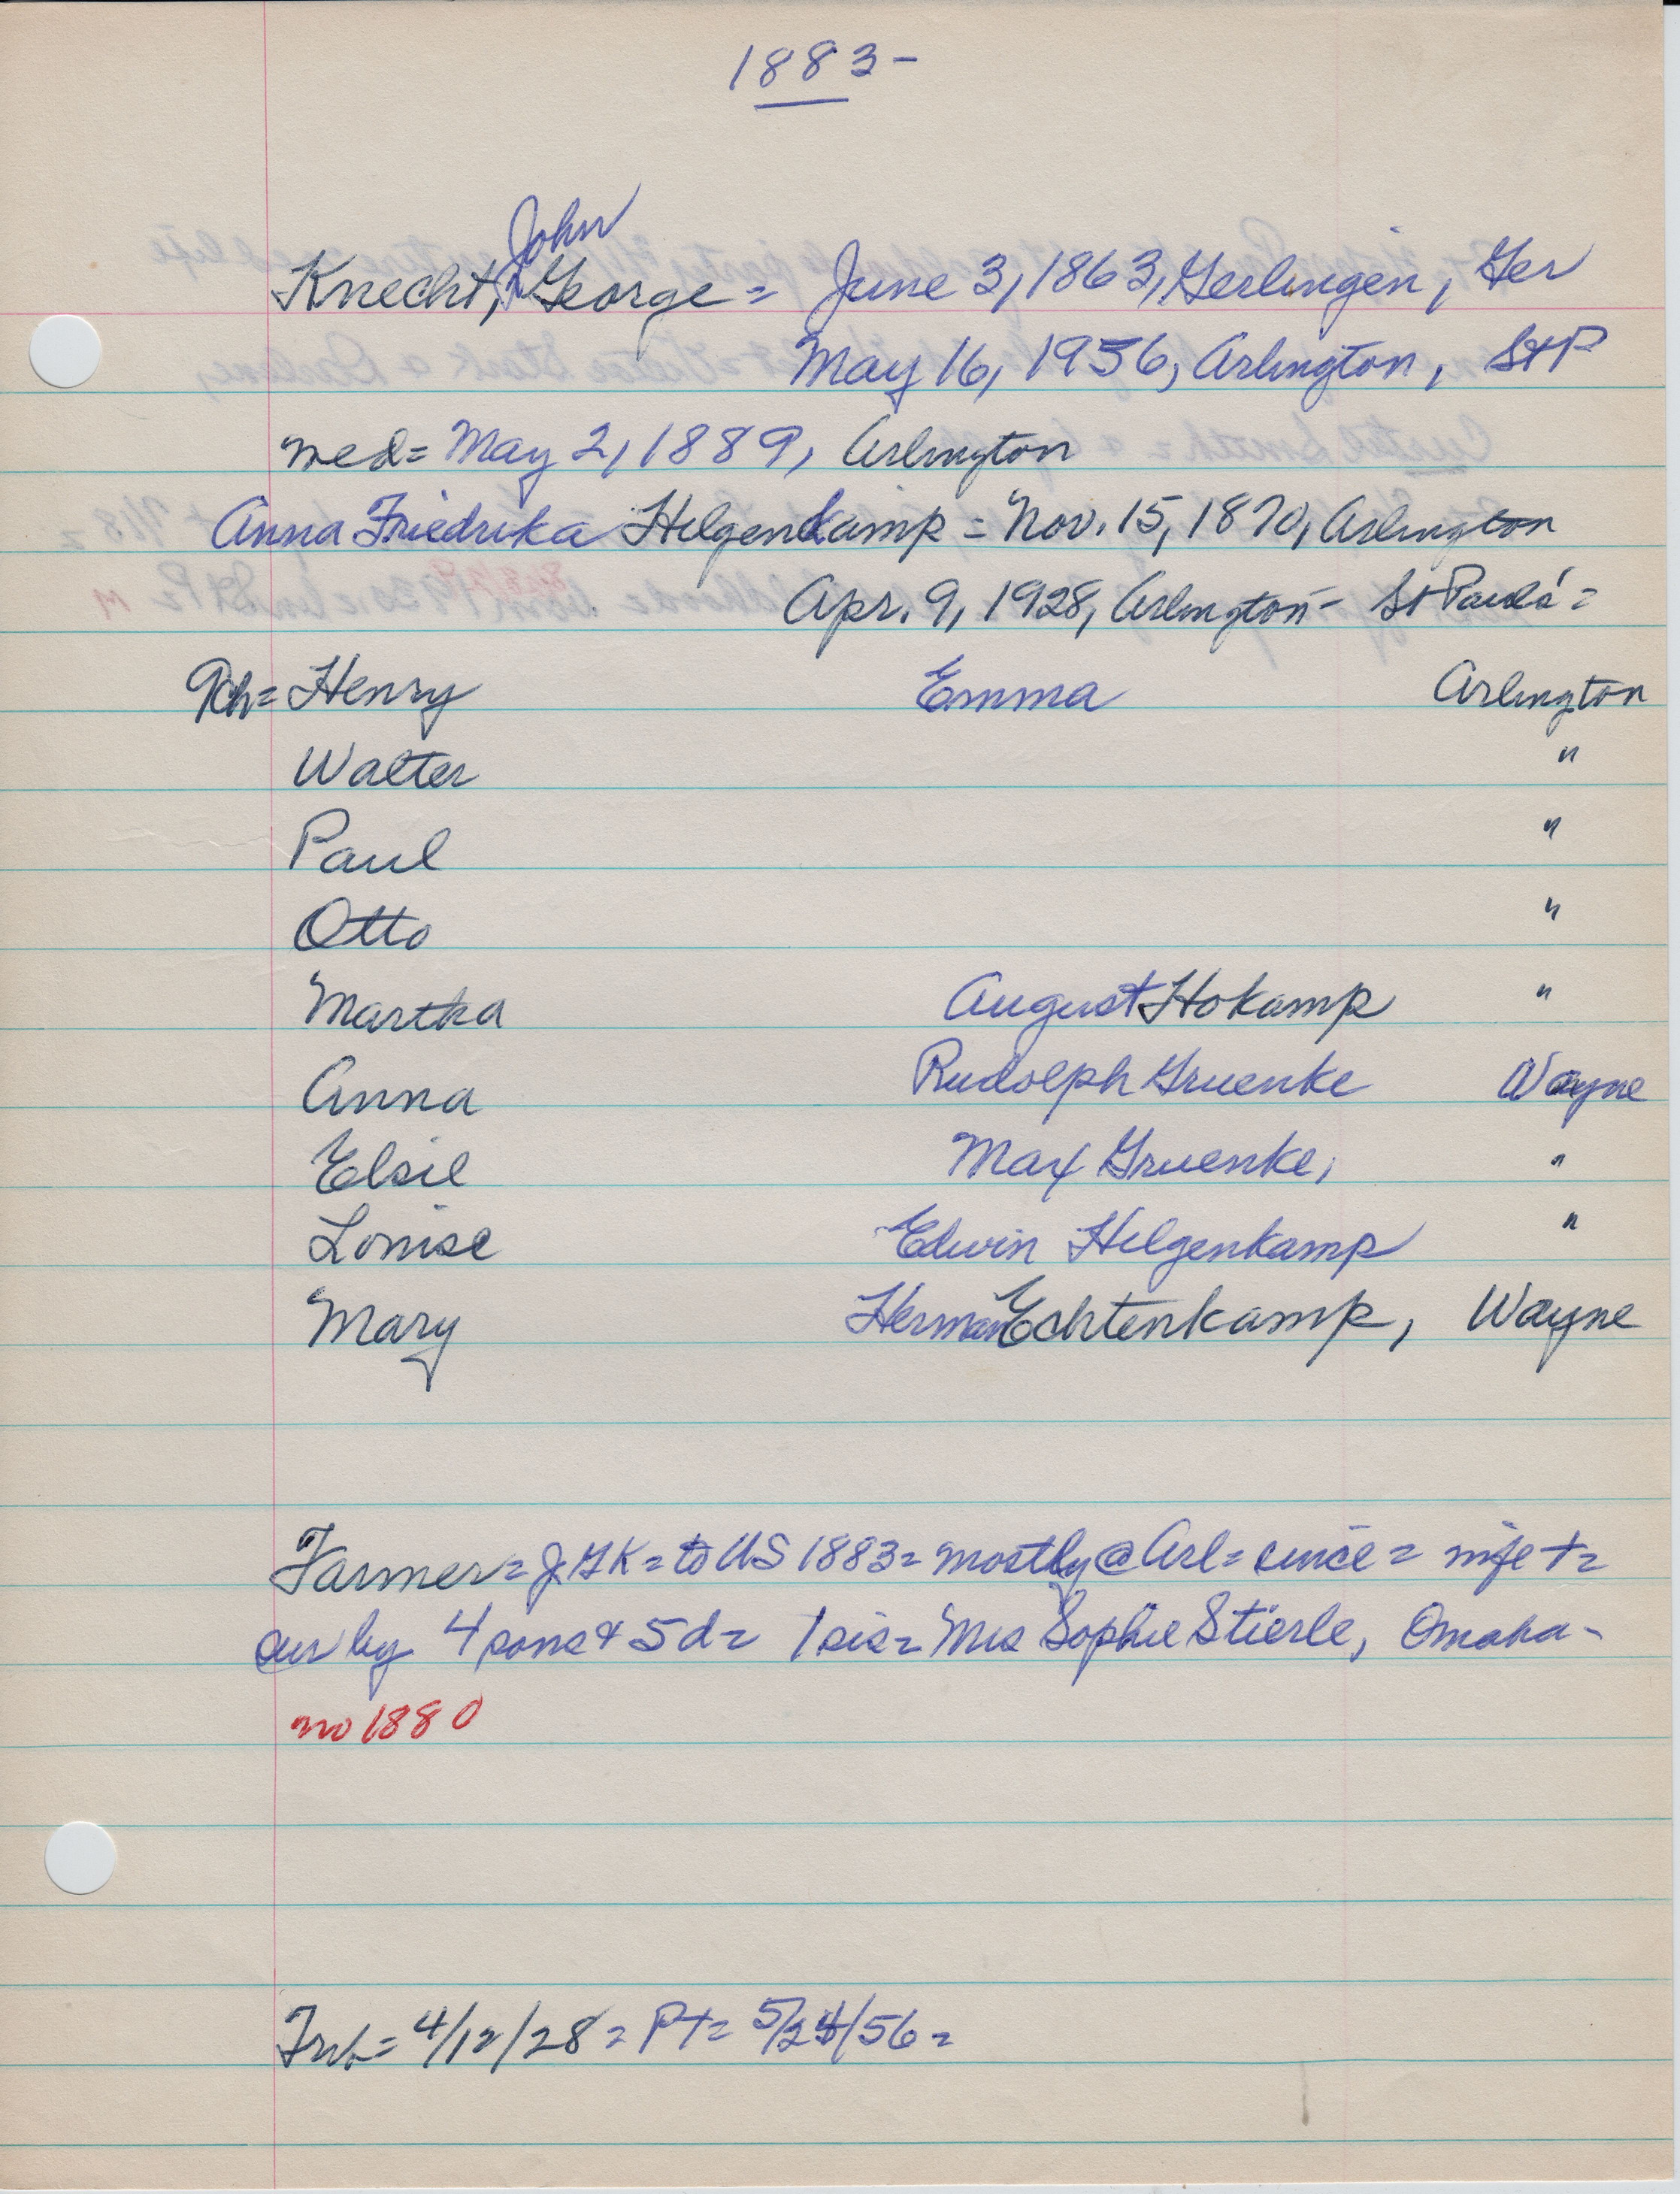 1883-
Knecht, John George = June 3, 1863, Gerlingen, Ger
May 16, 1956, Arlington, StP
med = May 2, 1889, Arlington
Anna Friedrika Hilgenkamp = Nov. 15, 1870, Arlington
Apr. 9, 1928, Arlington - St Paul's =
9ch = Henry Emma Arlington
Walter "
Paul "
Otto "
Martha August Hokamp "
Anna Rudolph Gruenke Wayne
Elsie Max Gruenke, "
Louise Edwin Hilgenkamp "
Mary Herman Echtenkamp, Wayne
Farmer = JGK = to US 1883 = mostly @ Arl = since = wife + =
sur by 4 sons & 5 d = 1 sis = Mrs Sophie Stierle, Omaha -
no 1880
Trib = 4/12/28 = Pt = 5/24/56 =